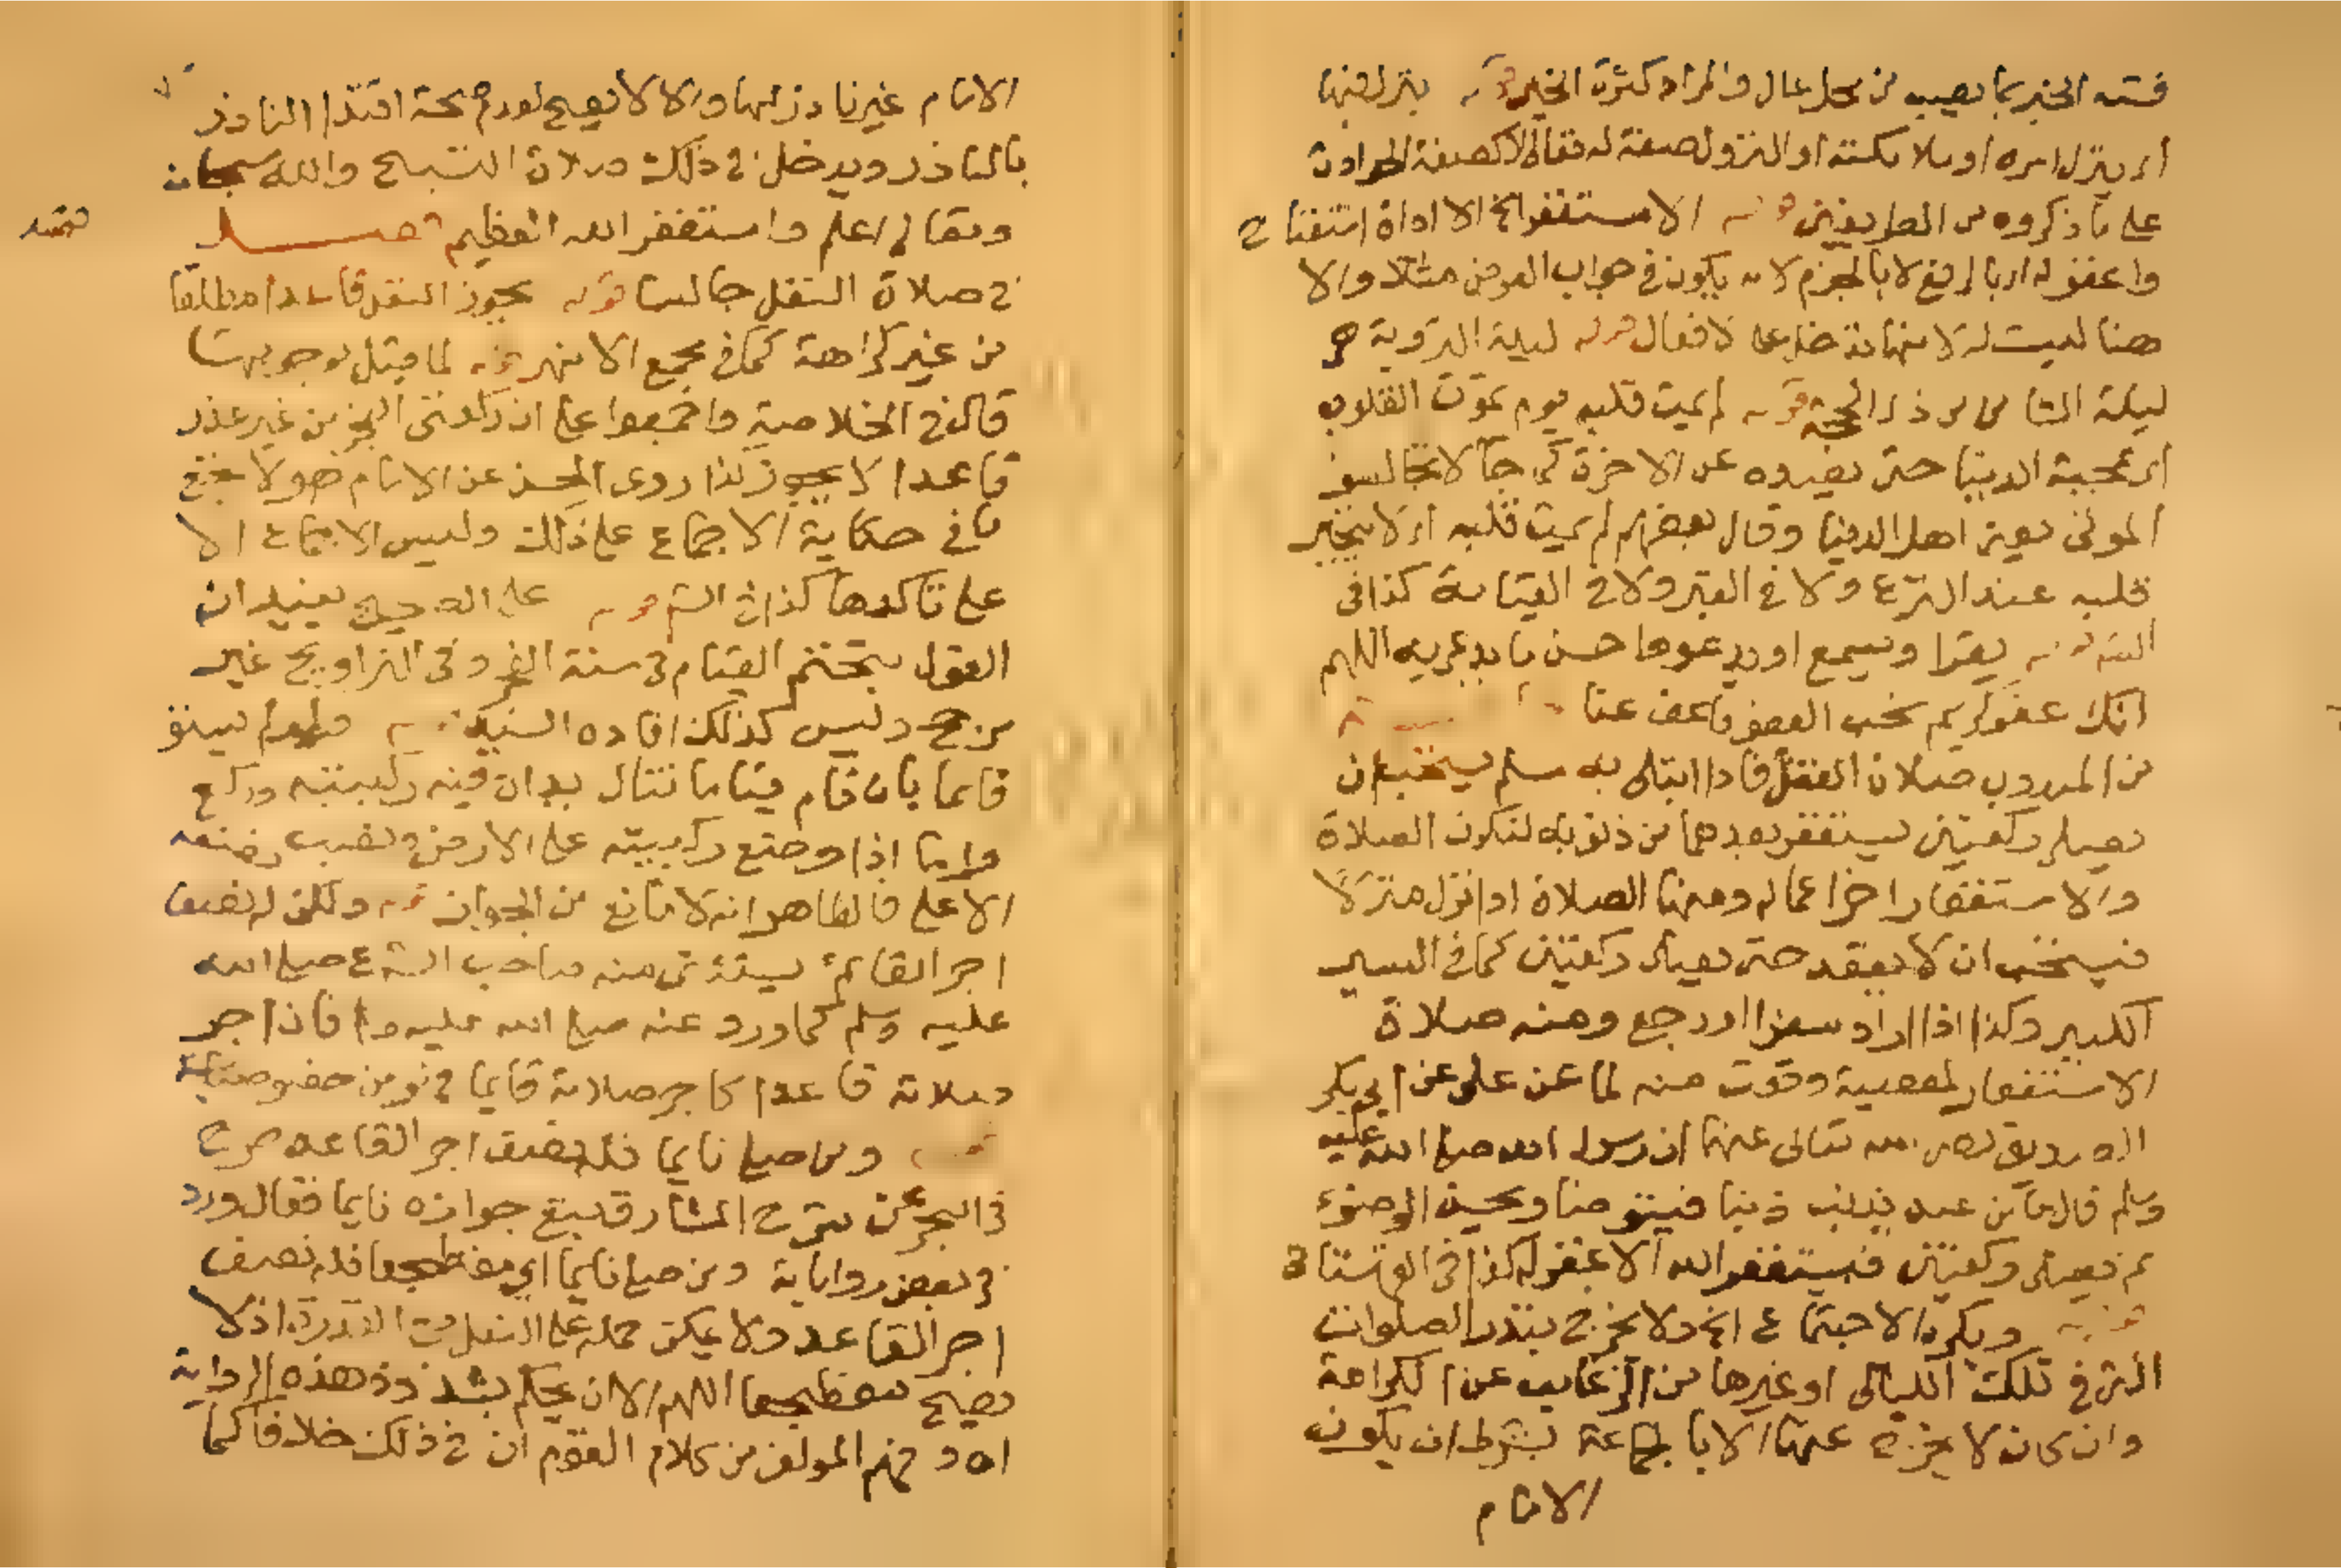 فشبه الخير بما يصب من محل عال والمراد كثرة الخير قوله ينزل فيها
أي ينزل امره او ملائكته او النزول صفة له تعالى لا كصفة الحوادث
على ما ذكروه من الطريقين قوله الا مستغفر الخ الا اداة استفتاح
واغفر له اي بالرفع لا بالجزم لانه يكون في جواب العرض مثلا والا
هنا ليست له لانها تدخل على الافعال قوله ليلة التروية هي
ليلة الثامن من ذي الحجة قوله لم يمت قلبه يوم تموت القلوب
اي بمحبة الدنيا حتى تصده عن الاخرة كما جاء لا تجالسوا
الموتى يعني اهل الدنيا وقال بعضهم لم يمت قلبه اي لا يتحير
قلبه عند النزع ولا في القبر ولا في القيامة كذا في
الشرح قوله يقرا ويسمع او يدعو وما حسن ما يدعو به اللهم
انك عفو كريم تحب العفو فاعف عنا
من المندوب صلاة القتل فاذا ابتلى به مسلم يستحب ان
يصلي ركعتين يستغفر بعدهما من ذنوبه لتكون الصلاة
والاستغفار اخر اعماله ومنها الصلاة اذا نزل منزلا
فيستحب ان لا يقعد حتى يصلي ركعتين كما في السير
الكبير وكذا اذا اراد سفرا او رجع ومنه صلاة
الاستغفار لمعصية وقعت منه لما عن علي عن ابي بكر
الصديق رضي الله تعالى عنهما ان رسول الله صلى الله عليه
وسلم قال ما من عبد يذنب ذنبا فيتوضا ويحسن الوضوء
ثم يصلي ركعتين فيستغفر الله الا غفر له كذا في القهستاني
قوله ويكره الاجتماع الخ ولا يخرج بنذر الصلوات
التي في تلك الليالي او غيرها من الرغايب عن الكراهة
وان كان لا يخرج عنها الا بالجماعة بشرط ان يكون
الامام
الامام غير ناذر لها والا لا يصح لعدم صحة اقتدا الناذر
بالناذر ويدخل في ذلك صلاة التسبيح والله سبحانه
وتعالى اعلم واستغفر الله العظيم فصل
في صلاة النفل جالسا قوله يجوز النفل قاعدا مطلقا
من غير كراهة كما في مجمع الانهر قوله لما قيل بوجوبها
قال في الخلاصة واجمعوا على ان ركعتي الفجر من غير عذر
قاعدا لا يجوز كذا روى الحسن عن الامام
ما في حكاية الاجماع على ذلك وليس الاجماع الا
على تاكدها كذا في الشرح قوله على الصحيح يفيد ان
القول بتحتم القيام في سنة الفجر وفي التراويح غير
مرجح وليس كذلك افاده السيد قوله
قايما بان قام قياما تنال يداه فيه ركبتيه وركع
واما اذا وضع ركبتيه على الارض ونصب نصفه
الاعلى فالظاهر انه لا مانع من الجواز قوله ولكن له نصف
اجر القائم يستثنى منه صاحب الشرع صلى الله
عليه وسلم كما ورد عنه صلى الله عليه وسلم فان اجر
صلاته قاعدا كاجر صلاته قايما فهو من خصوصياته
قوله ومن صلى نايما فله نصف اجر القاعد صرح
في البحر عن شرح المشارق جوازه نايما فقال ورد
في بعض رواياته ومن صلى نايما اي مضطجعا فله نصف
اجر القاعد ولا يمكن حمله على النفل مع القدرة اذ لا
يصح مضطجعا اللهم الا ان يحكم بشذوذ هذه الرواية
اه وفهم المولف من كلام القوم ان في ذلك خلافا كما